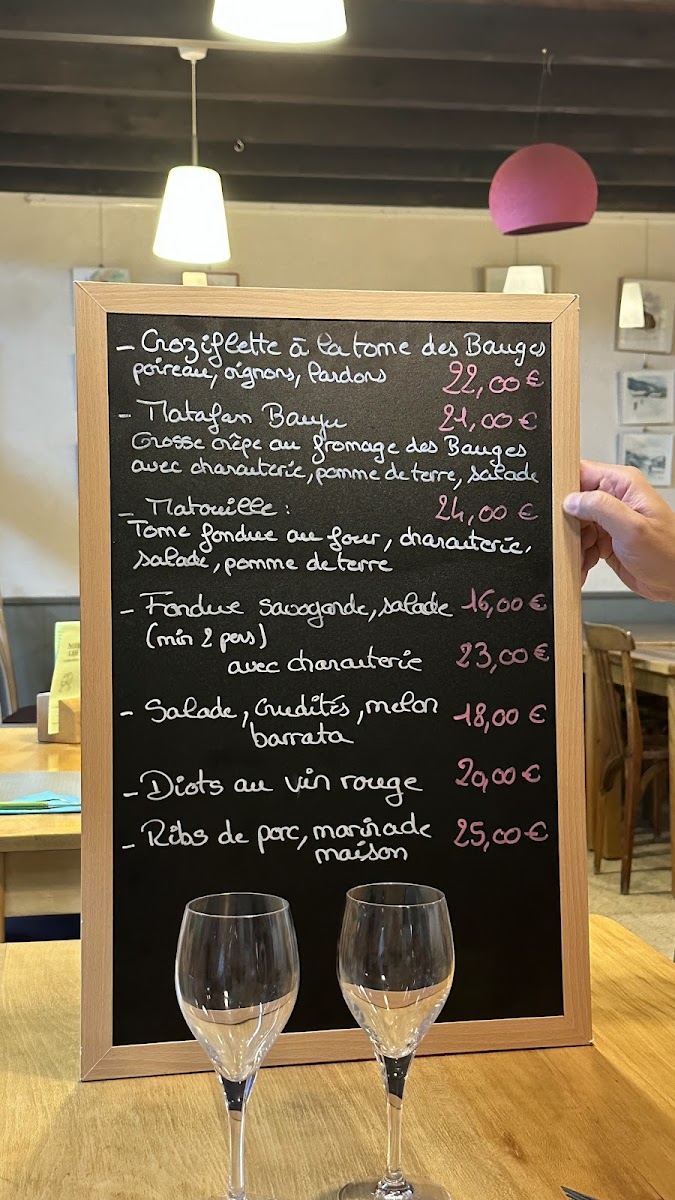 - Croziflette à la tome des Bauges
poireau, oignons, lardons 22,00 €
- Matafan Bauju 21,00 €
Grosse crêpe au fromage des Bauges
avec charcuterie, pomme de terre, salade
- Matouille : 24,00 €
Tome fondue au four, charcuterie,
salade, pomme de terre
- Fondue savoyarde, salade 16,00 €
(min 2 pers)
avec charcuterie 23,00 €
- Salade, crudités, melon 18,00 €
barrata
- Diots au vin rouge 20,00 €
- Ribs de porc, marinade 25,00 €
maison